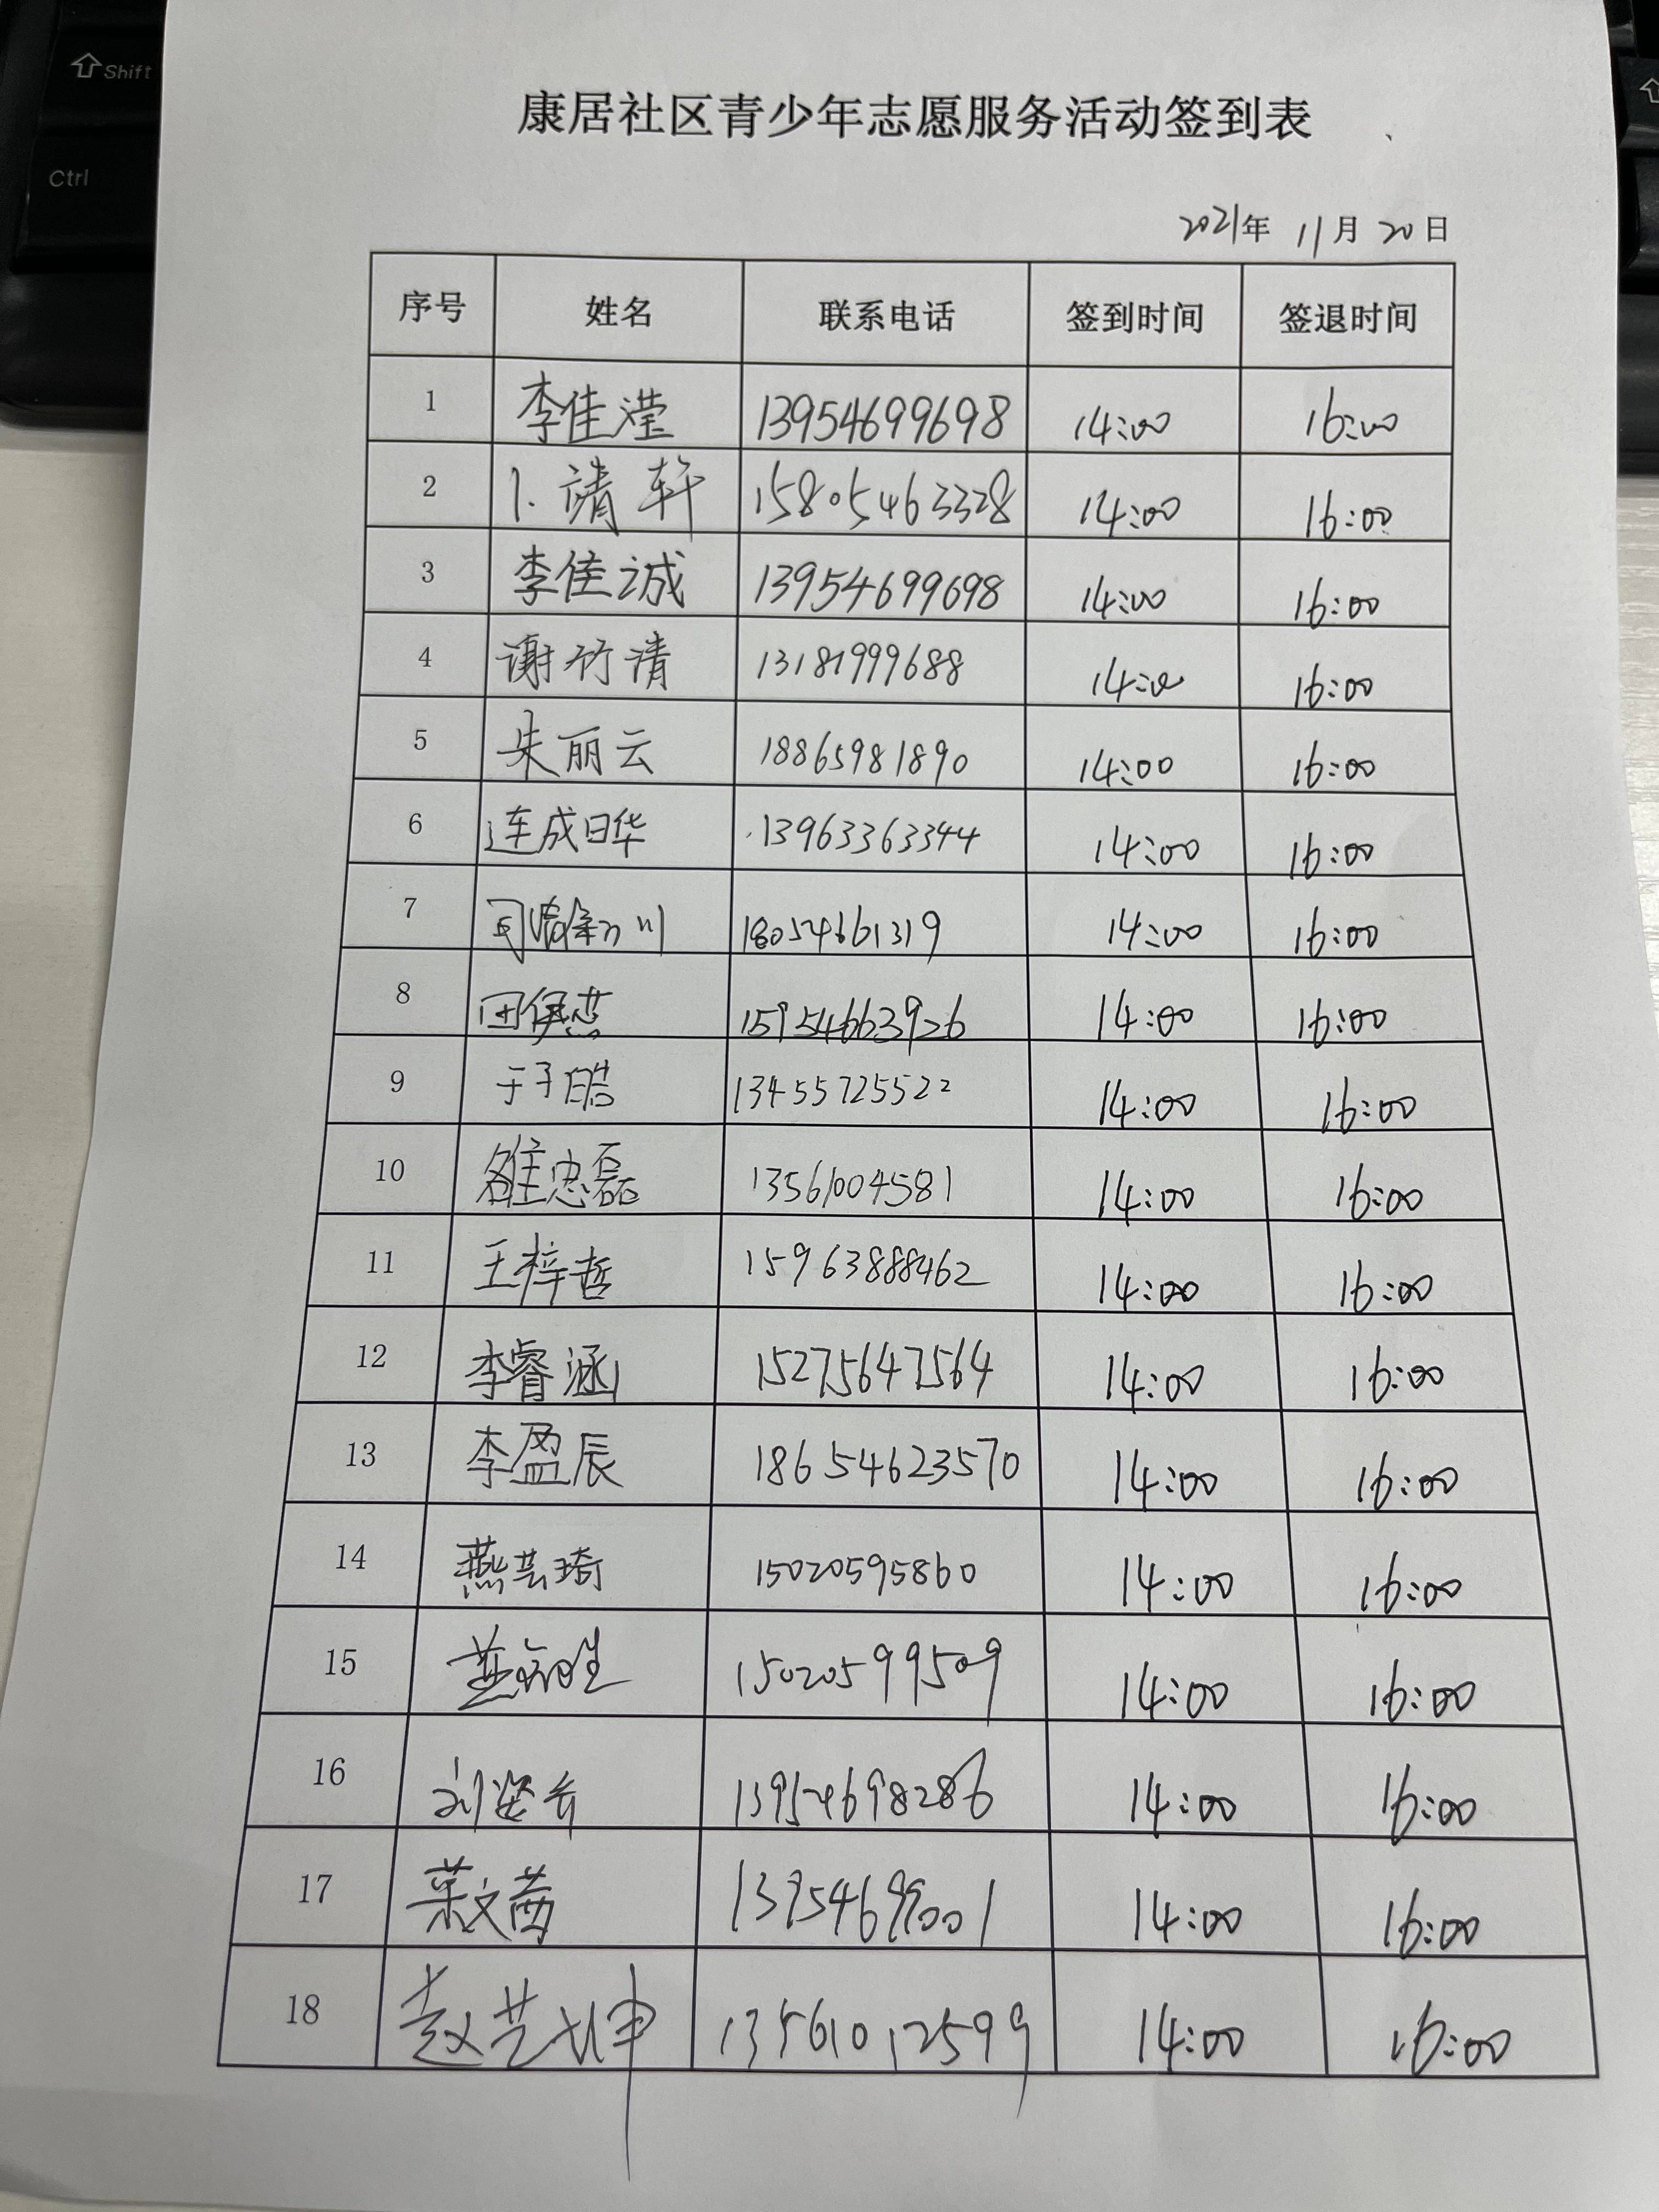 Shift
Ctrl
康居社区青少年志愿服务活动签到表
2021年 11月 20日
序号 姓名 联系电话 签到时间 签退时间
1 李佳滢 13954699698 14:00 16:00
2 卜靖轩 15805463328 14:00 16:00
3 李佳诚 13954699698 14:00 16:00
4 谢竹清 13181999688 14:00 16:00
5 朱丽云 18865981890 14:00 16:00
6 连成日华 13963363344 14:00 16:00
7 18054661319 14:00 16:00
8 15954663926 14:00 16:00
9 于子皓 13455725522 14:00 16:00
10 雒忠磊 13561004581 14:00 16:00
11 王梓哲 15963888462 14:00 16:00
12 李睿涵 15275647564 14:00 16:00
13 李盈辰 18654623570 14:00 16:00
14 燕芸琦 15020595860 14:00 16:00
15 15020599509 14:00 16:00
16 13954698286 14:00 16:00
17 菜文茜 13954699001 14:00 16:00
18 赵艺坤 13561012599 14:00 16:00